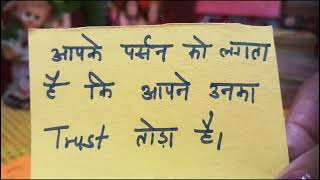 आपके पर्सन को लगता
है कि आपने उनका
Trust तोड़ा है।